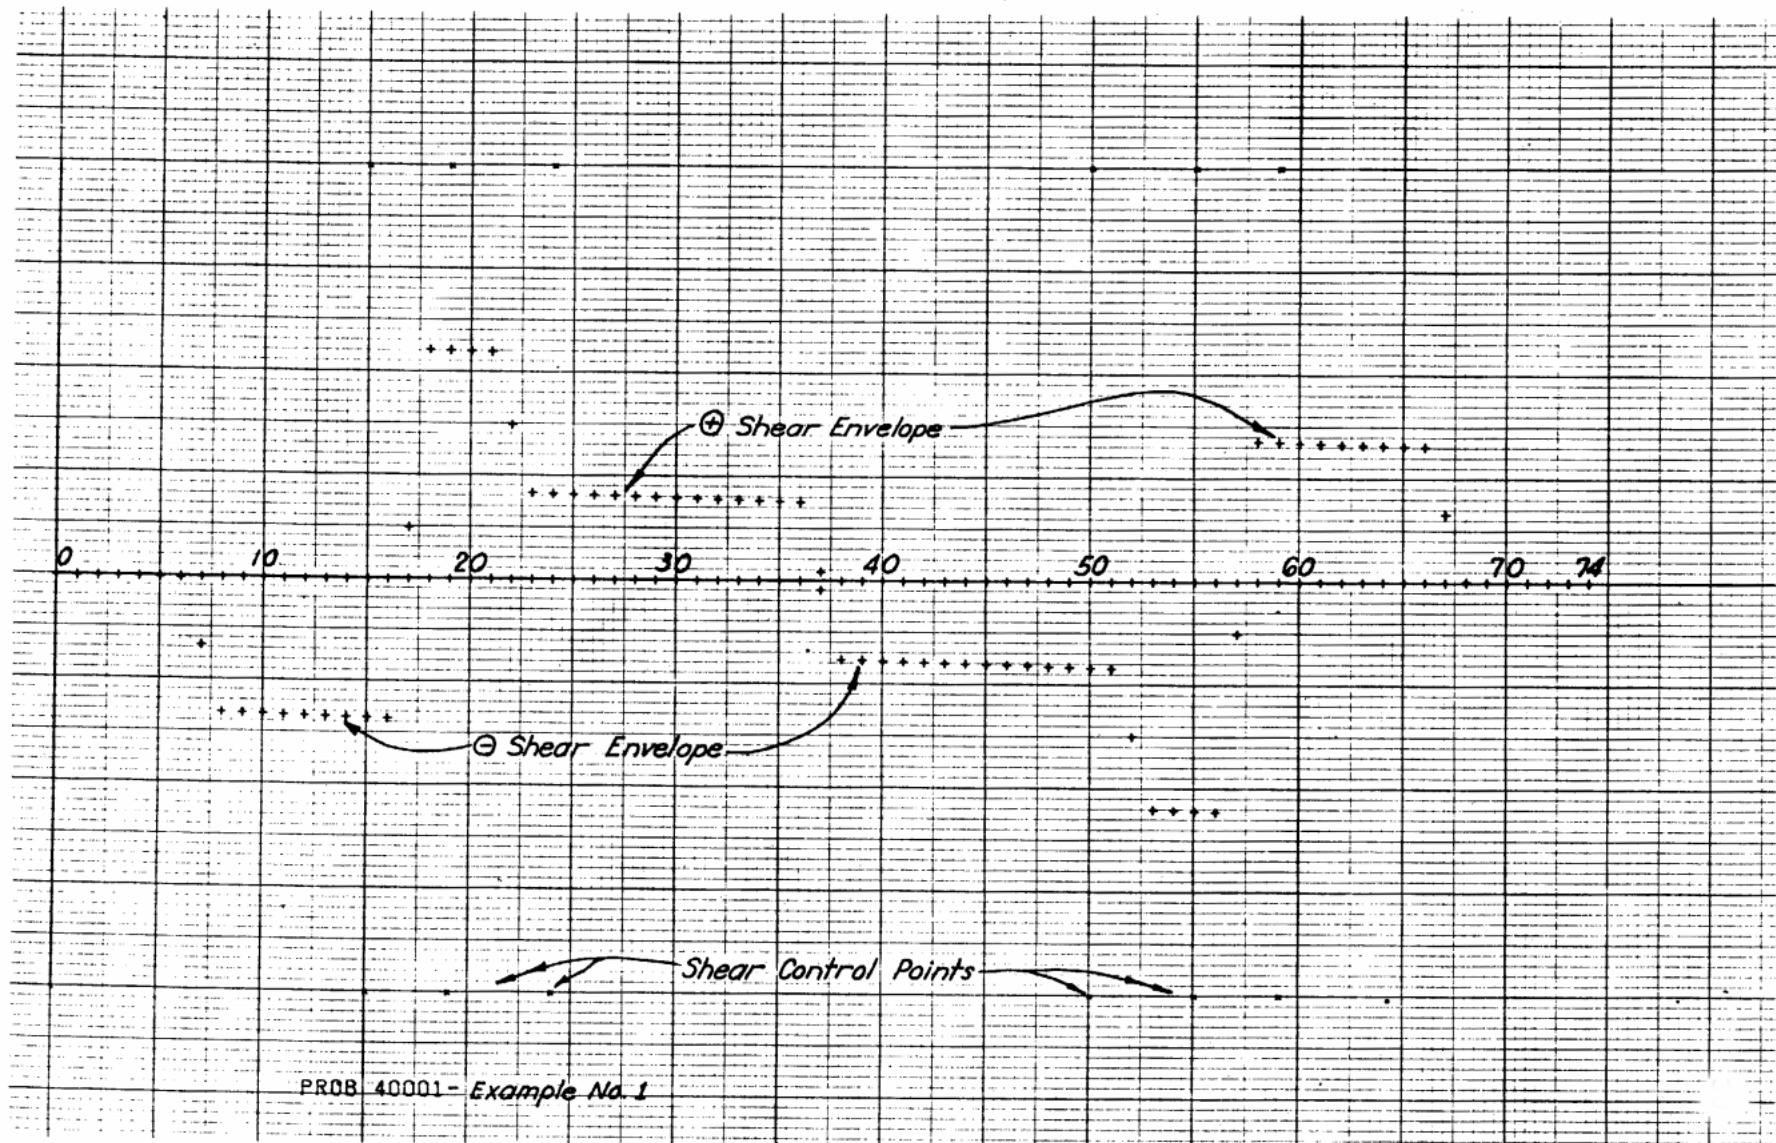 ⊕ Shear Envelope
0 10 20 30 40 50 60 70 74
⊖ Shear Envelope
Shear Control Points
PROB 40001- Example No. 1